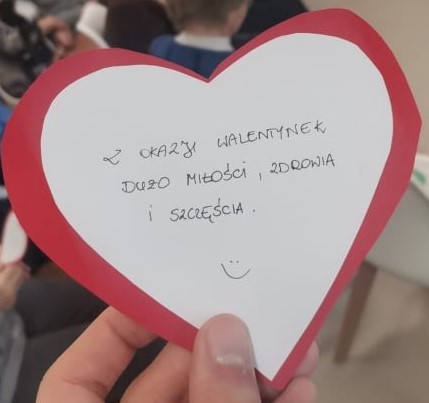 Z OKAZJI WALENTYNEK
DUŻO MIŁOŚCI, ZDROWIA
I SZCZĘŚCIA.